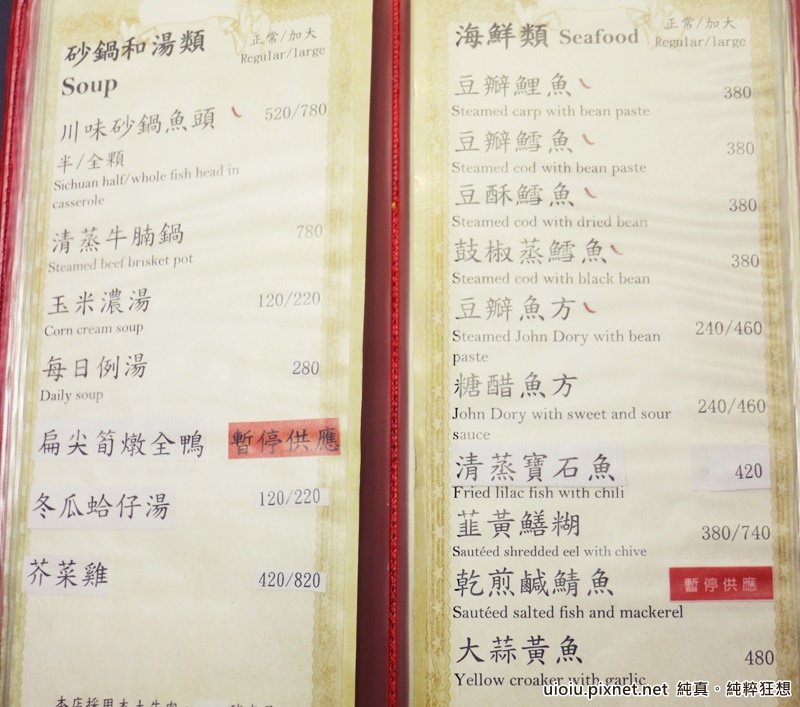 砂鍋和湯類
正常/加大
Soup
Regular/large
川味砂鍋魚頭 520/780
半/全顆
Sichuan half/whole fish head in
casserole
清蒸牛腩鍋 780
Steamed beef brisket pot
玉米濃湯 120/220
Corn cream soup
每日例湯 280
Daily soup
扁尖筍燉全鴨 暫停供應
冬瓜蛤仔湯 120/220
芥菜雞 420/820
本店採用本土牛肉
海鮮類 Seafood
正常/加大
Regular/large
豆瓣鯉魚 380
Steamed carp with bean paste
豆瓣鱈魚 380
Steamed cod with bean paste
豆酥鱈魚 380
Steamed cod with dried bean
鼓椒蒸鱈魚 380
Steamed cod with black bean
豆瓣魚方 240/460
Steamed John Dory with bean
paste
糖醋魚方 240/460
John Dory with sweet and sour
sauce
清蒸寶石魚 420
Fried lilac fish with chili
韮黃鱔糊 380/740
Sautéed shredded eel with chive
乾煎鹹鯖魚 暫停供應
Sautéed salted fish and mackerel
大蒜黃魚 480
Yellow croaker with garlic
uioiu.pixnet.net 純真。純粹狂想